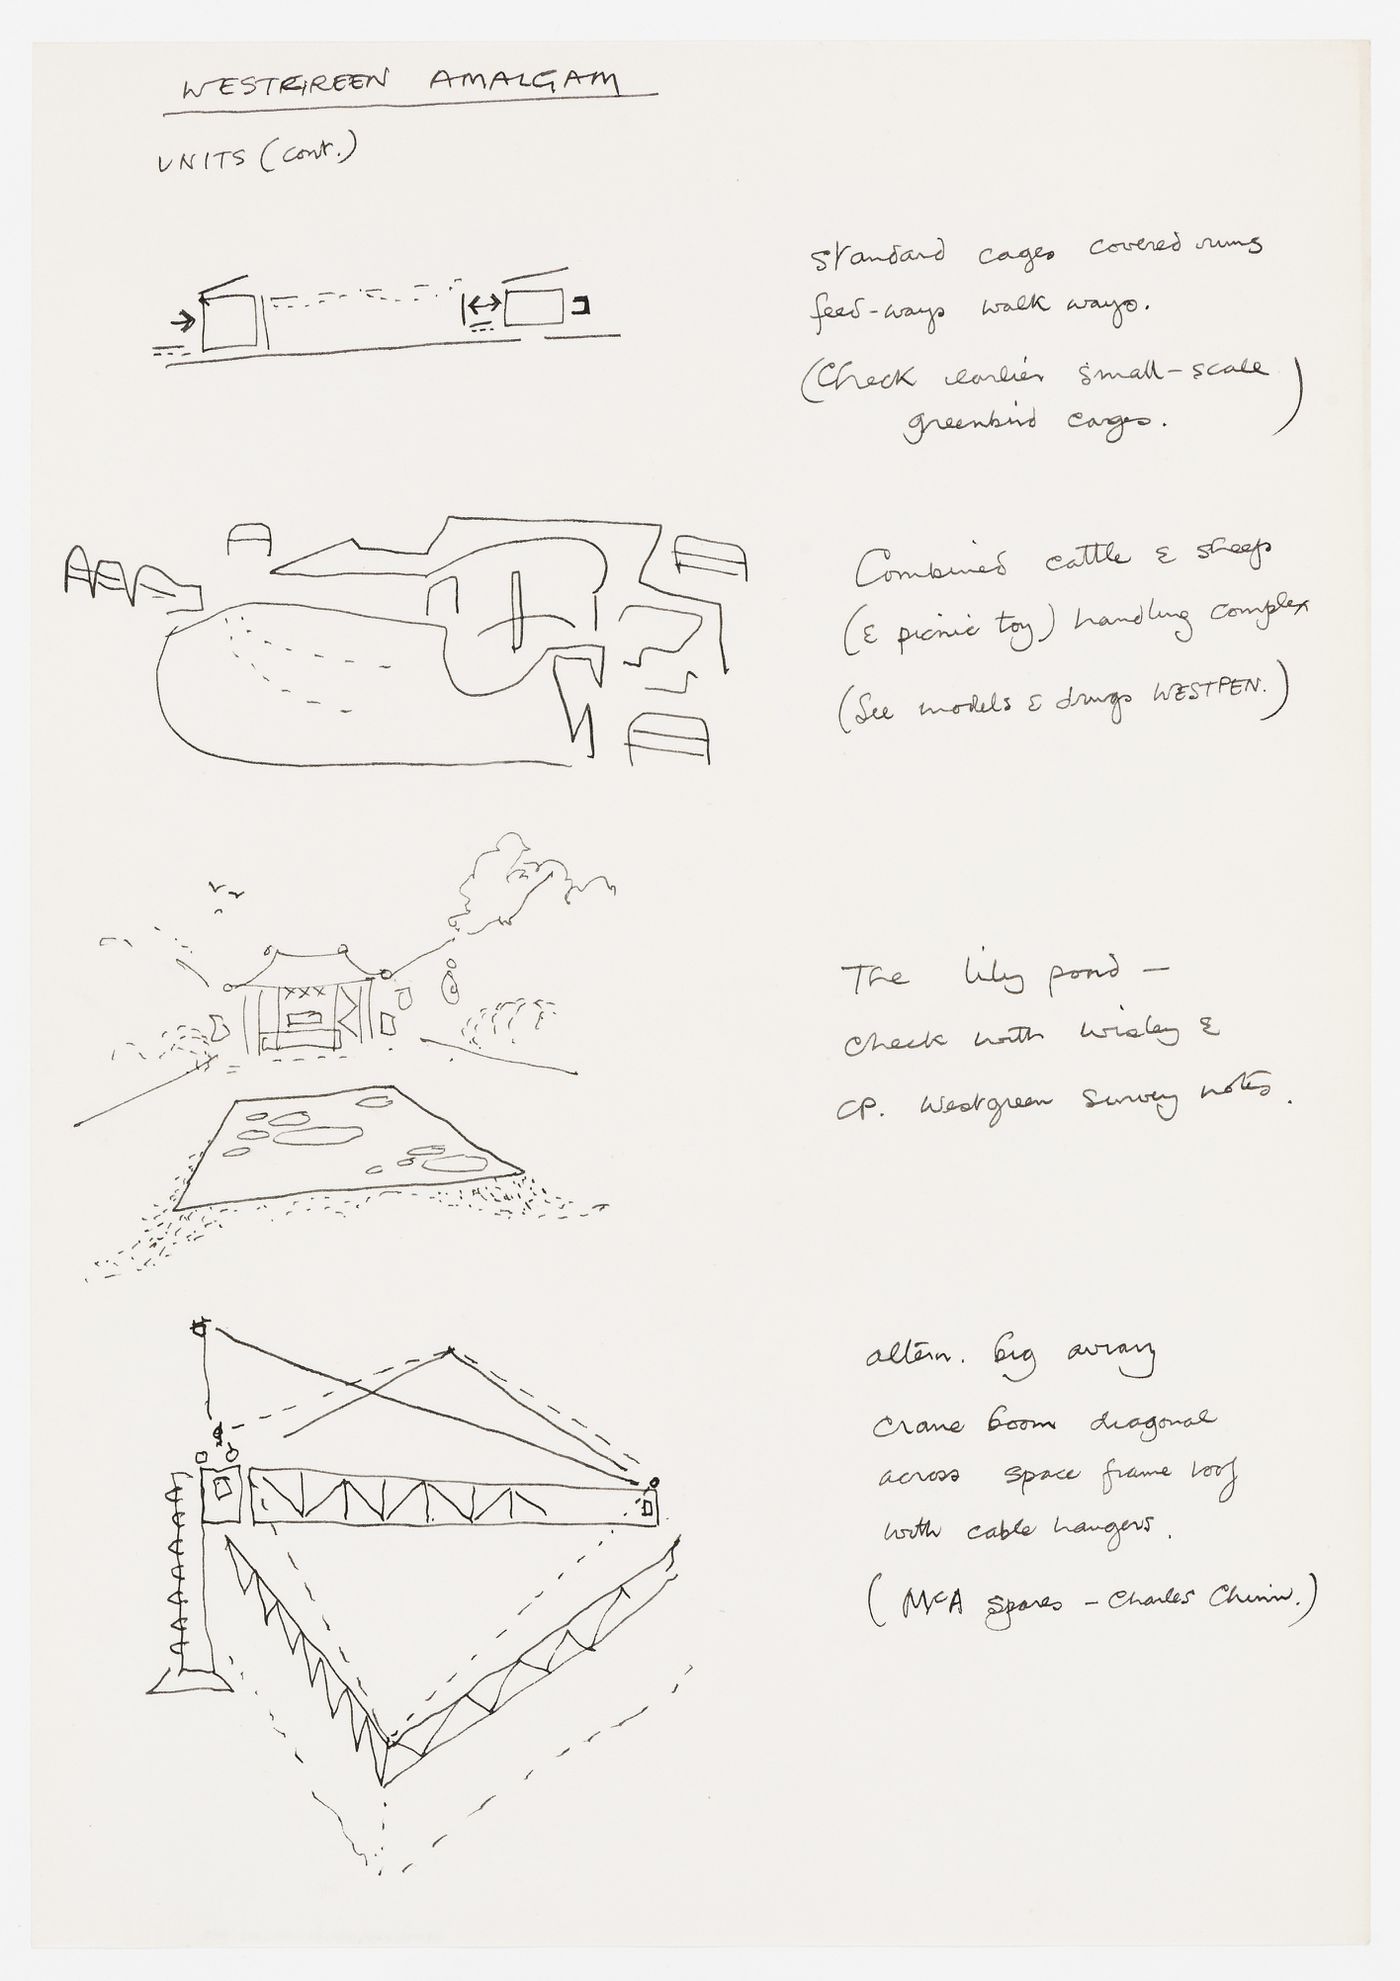 WESTGREEN AMALGAM
UNITS (cont.)
standard cages covered runs
feed-ways walk ways.
(Check earlier small-scale
greenbird cages.)
Combined cattle & sheep
(& picnic toy) handling complex
(See models & drwgs WESTPEN.)
The lily pond –
check with wisley &
CP. Westgreen survey notes.
altern. big aviary
crane boom diagonal
across space frame roof
with cable hangers.
(McA spares – Charles Chinn.)